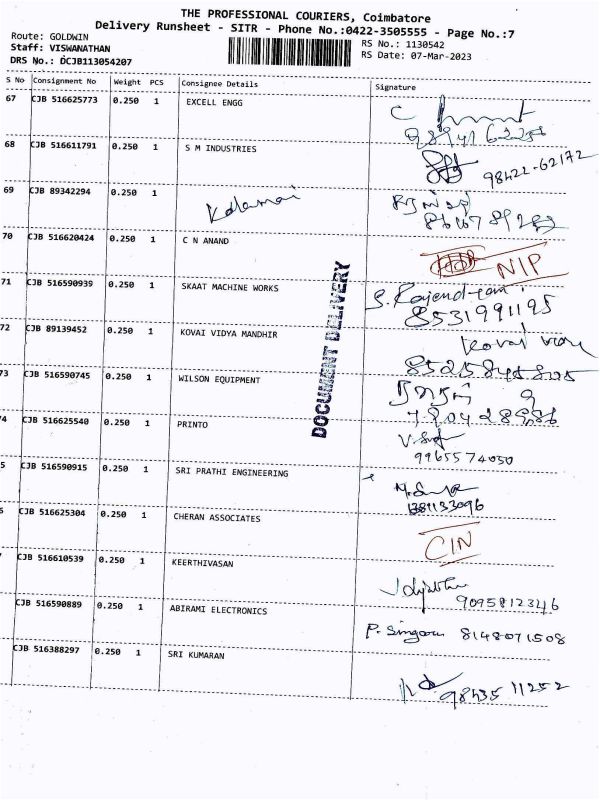 THE PROFESSIONAL COURIERS, Coimbatore
Delivery Runsheet - SITR - Phone No.:0422-3505555 - Page No.:7
Route: GOLDWIN
Staff: VISWANATHAN
DRS No.: DCJB113054207
RS No.: 1130542
RS Date: 07-Mar-2023
S No Consignment No Weight PCS Consignee Details Signature
67 CJB 516625773 0.250 1 EXCELL ENGG
68 CJB 516611791 0.250 1 S M INDUSTRIES 98422-62172
69 CJB 89342294 0.250 1
70 CJB 516620424 0.250 1 C N ANAND NIP
71 CJB 516590939 0.250 1 SKAAT MACHINE WORKS S. Rajendran
8531991195
72 CJB 89139452 0.250 1 KOVAI VIDYA MANDHIR Kovai
73 CJB 516590745 0.250 1 WILSON EQUIPMENT
4 CJB 516625540 0.250 1 PRINTO
9965574050
5 CJB 516590915 0.250 1 SRI PRATHI ENGINEERING
6 CJB 516625304 0.250 1 CHERAN ASSOCIATES CIN
7 CJB 516610539 0.250 1 KEERTHIVASAN
9095812346
CJB 516590889 0.250 1 ABIRAMI ELECTRONICS P. 8148071508
CJB 516388297 0.250 1 SRI KUMARAN
98435 11252
DOCUMENT DELIVERY